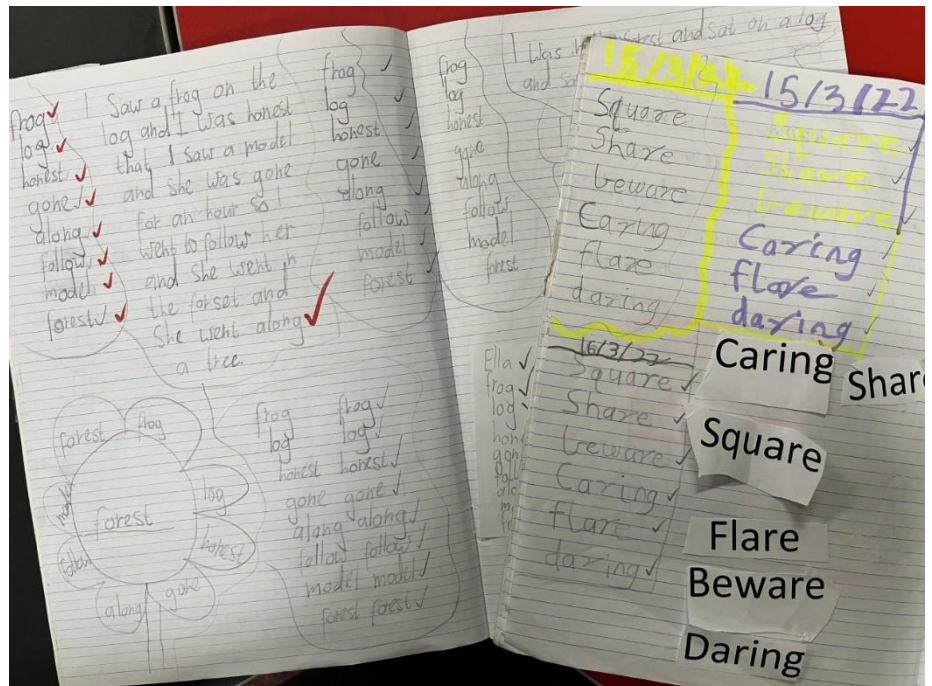 frog
log
honest
gone
along
follow
model
forest
I Saw a frog on the
log and I was honest
that I saw a model
and she was gone
for an hour so I
went to follow her
and she went in
the forset and
She went along
a tree.
frog
log
honest
gone
along
follow
model
forest
forest
frog
log
honest
gone
along
forest
frog frog
log log
honest honest
gone gone
along along
follow follow
model model
forest forest
frog
log
honest
gone
along
follow
model
forest
I Was
and sat on a log
Ella
frog
log
15/3/22
Square
Share
beware
Caring
flare
daring
15/3/22
Square
Share
beware
Caring
flare
daring
16/3/22
Square
Share
beware
Caring
flare
daring
Caring
Shar
Square
Flare
Beware
Daring